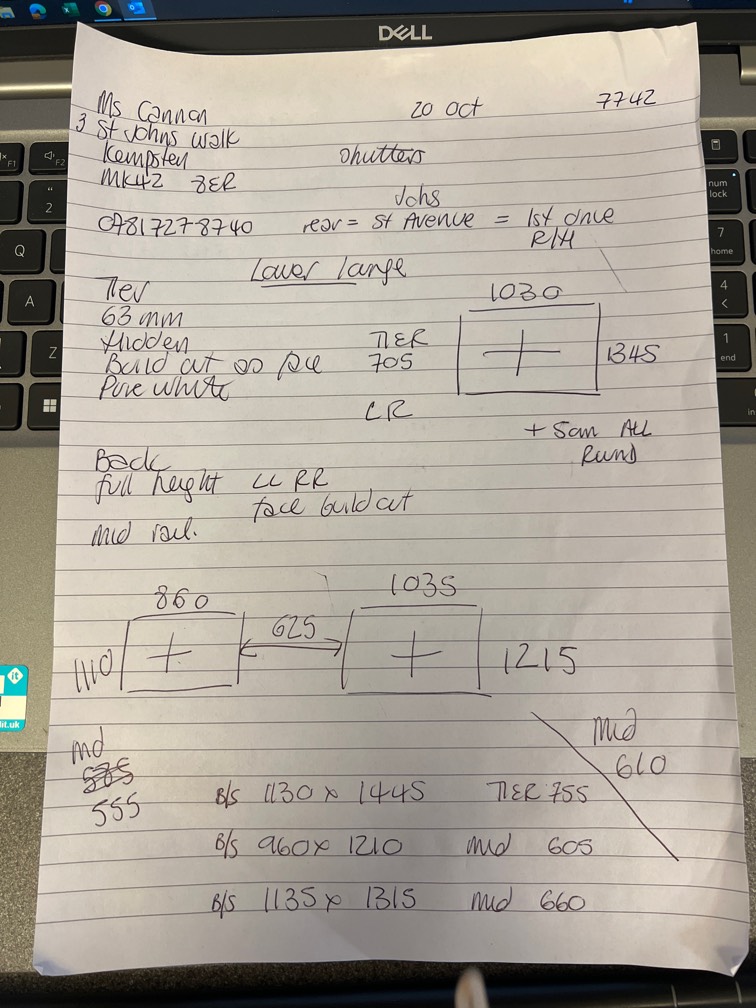 DELL
Ms Cannon 20 Oct 7742
3 St Johns Walk
Kempsten
MK42 8ER Shutters
Johs
07817278740 rear = St Avenue = 1st drive
R/H
Lower Large
Tier 1030
63 mm
Hidden TIER
Build out 705 1345
Pure white
LR
+ 50m All
Rund
Back
full height LL RR
face build out
mid rail.
860 1035
625
1110 1215
md mid
555 610
B/S 1130 x 1445 TIER 755
B/S 960 x 1210 mid 605
B/S 1135 x 1315 mid 660
F1
F2
2
Q
A
Z
num
lock
7
home
4
<
1
end
it
lit.uk